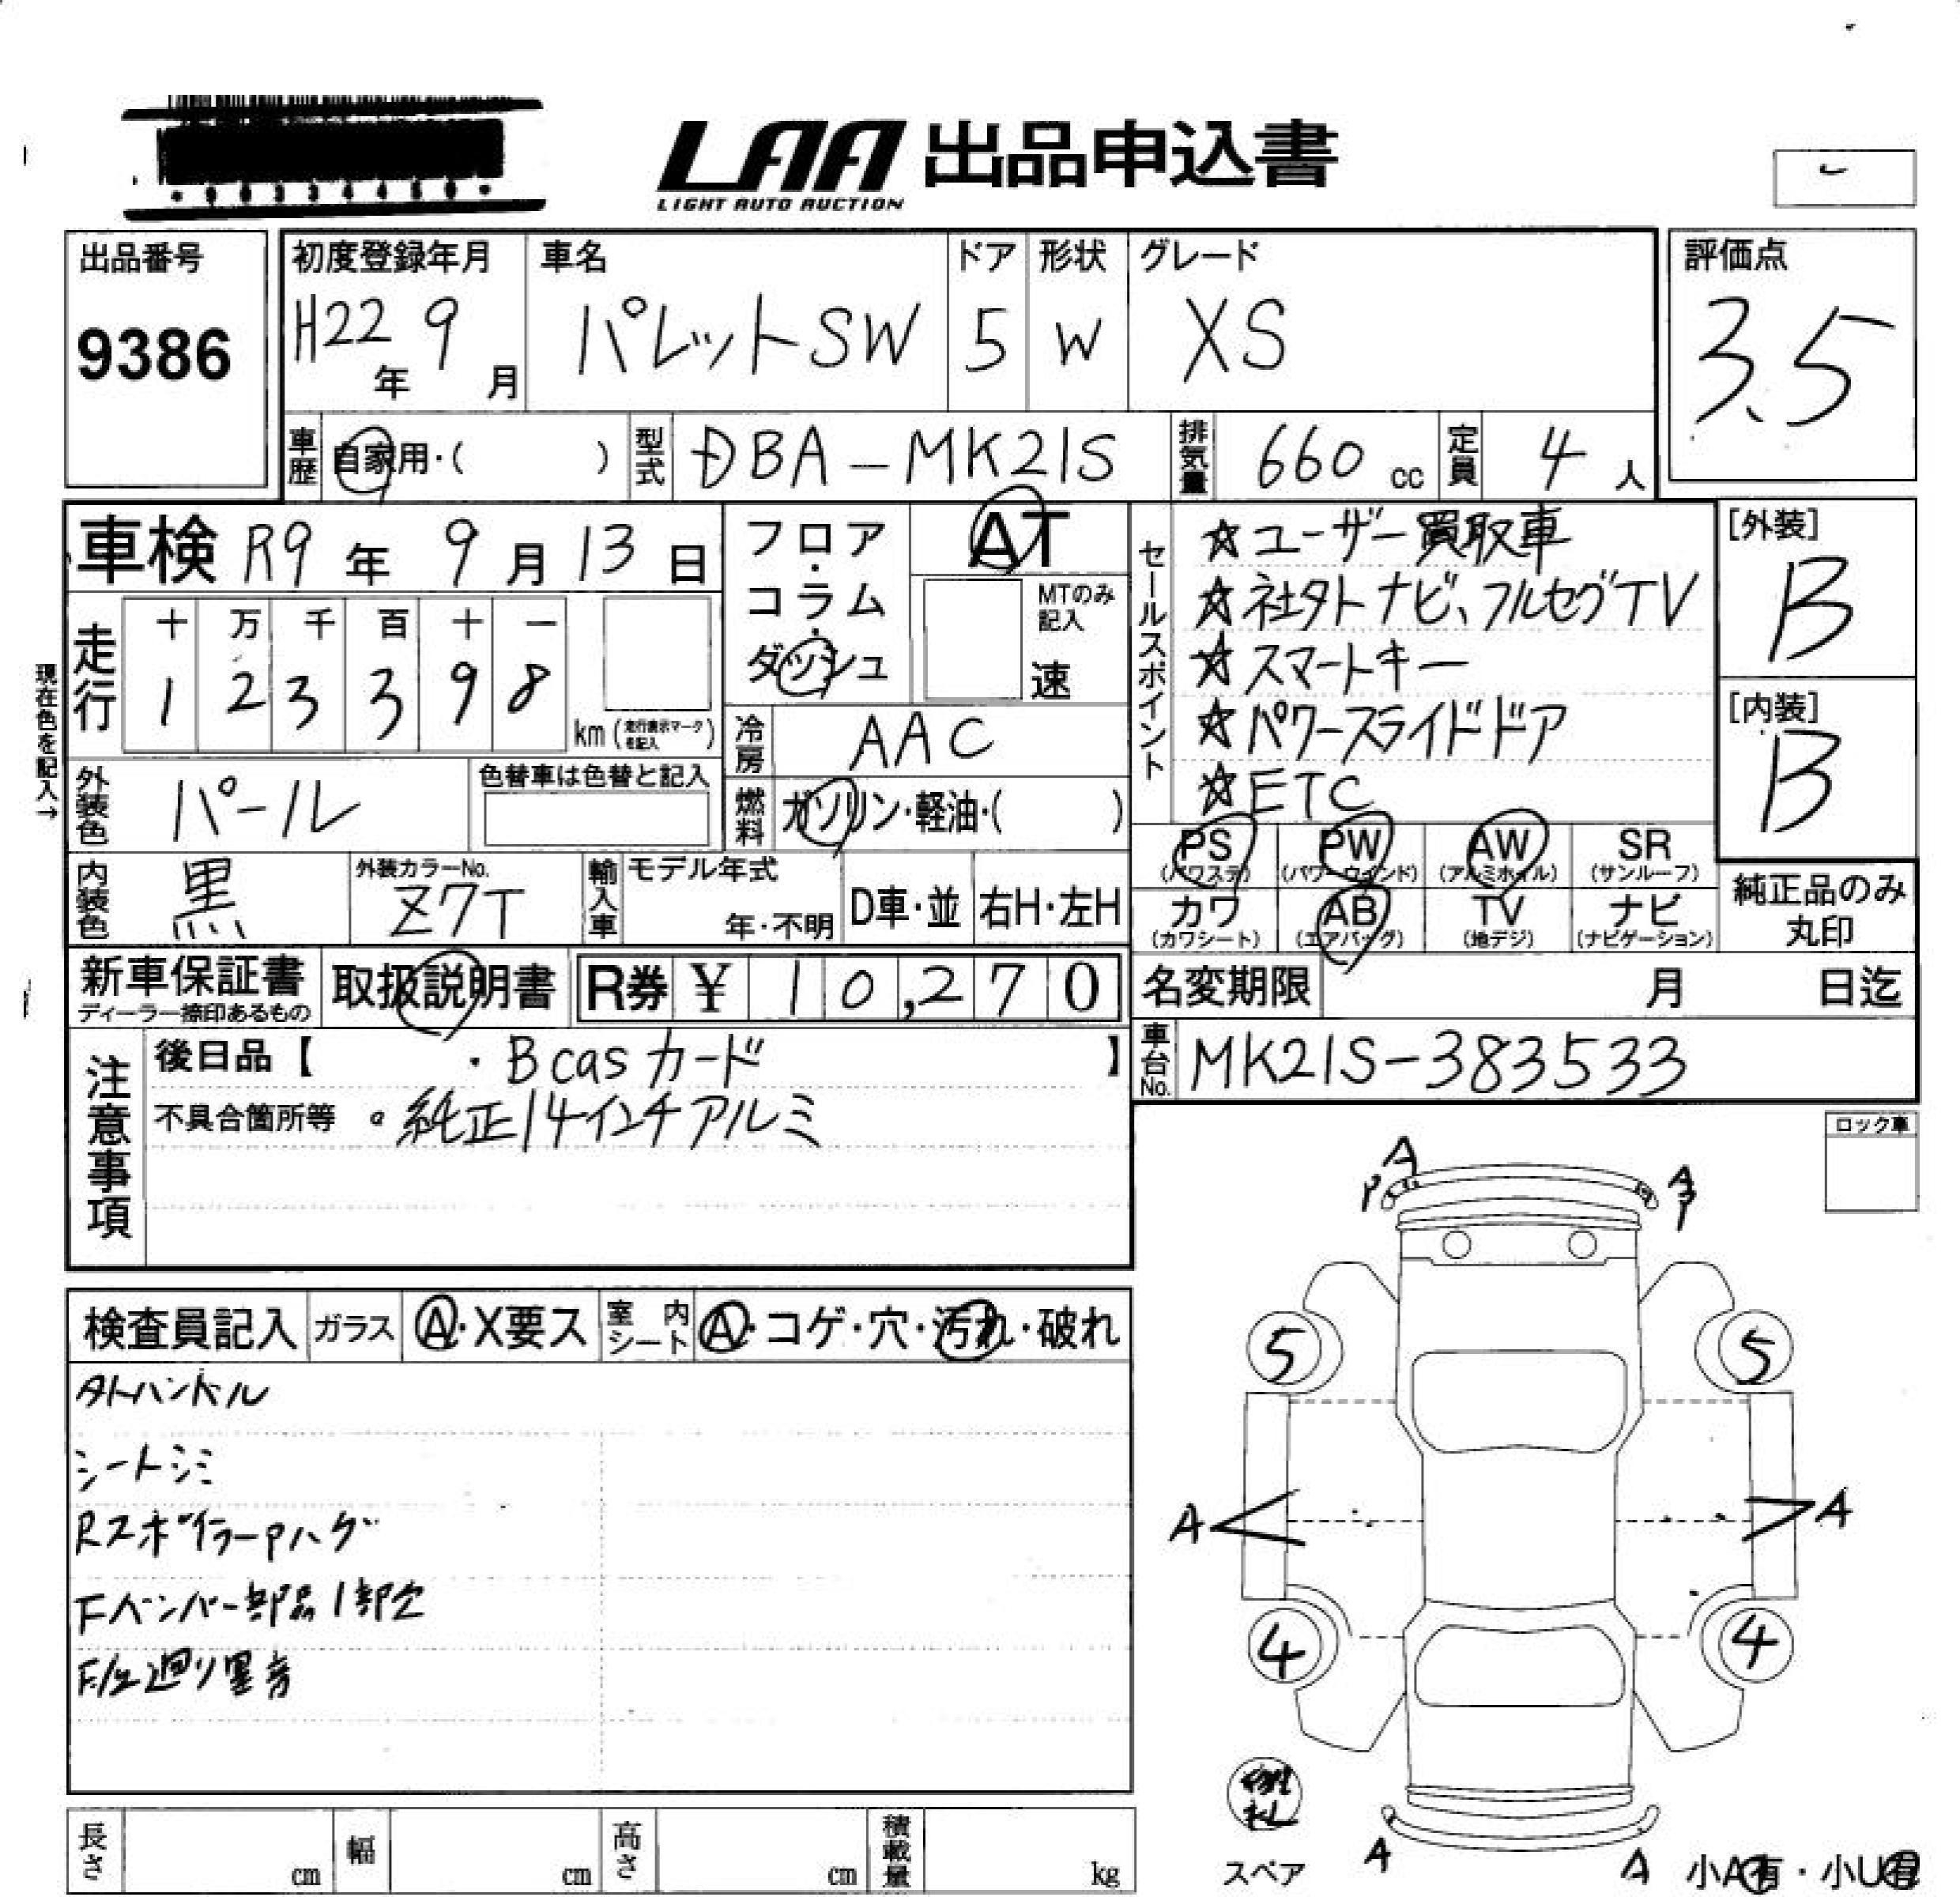 LAA 出品申込書
LIGHT AUTO AUCTION
出品番号
9386
初度登録年月
H22年 9月
車名
パレットSW
ドア
5
形状
W
グレード
XS
評価点
3.5
車歴 自家用・( )
型式 DBA-MK21S
排気量 660 cc
定員 4 人
車検 R9年 9月 13日
走行
十 万 千 百 十 一
1 2 3 3 9 8
km(走行表示マークを記入)
現在色を記入→
外装色 パール
色替車は色替と記入
内装色 黒
外装カラーNo.
Z7T
輸入車 モデル年式
年・不明
D車・並
右H・左H
フロア・コラム・ダッシュ
AT
MTのみ記入
速
冷房 AAC
燃料 ガソリン・軽油・( )
セールスポイント
☆ユーザー買取車
☆社外ナビ、フルセグTV
☆スマートキー
☆パワースライドドア
☆ETC
[外装]
B
[内装]
B
PS (パワステ)
PW (パワーウインド)
AW (アルミホイル)
SR (サンルーフ)
カワ (カワシート)
AB (エアバッグ)
TV (地デジ)
ナビ (ナビゲーション)
純正品のみ
丸印
新車保証書
ディーラー捺印あるもの
取扱説明書
R券 ¥ 10,270
名変期限 月 日迄
車台No. MK21S-383533
注意事項
後日品【 ・Bcasカード 】
不具合箇所等 。純正14インチアルミ
ロック車
検査員記入
ガラス A・X要ス
室内シート A・コゲ・穴・汚れ・破れ
外ハンドル
シートシミ
Rスポイラーpハゲ
Fバンパー部品1部欠
F/左廻り異音
A
P
A
P
5
5
A
A
4
4
スペア
A
A
小A有・小U有
長さ cm
幅 cm
高さ cm
積載量 kg